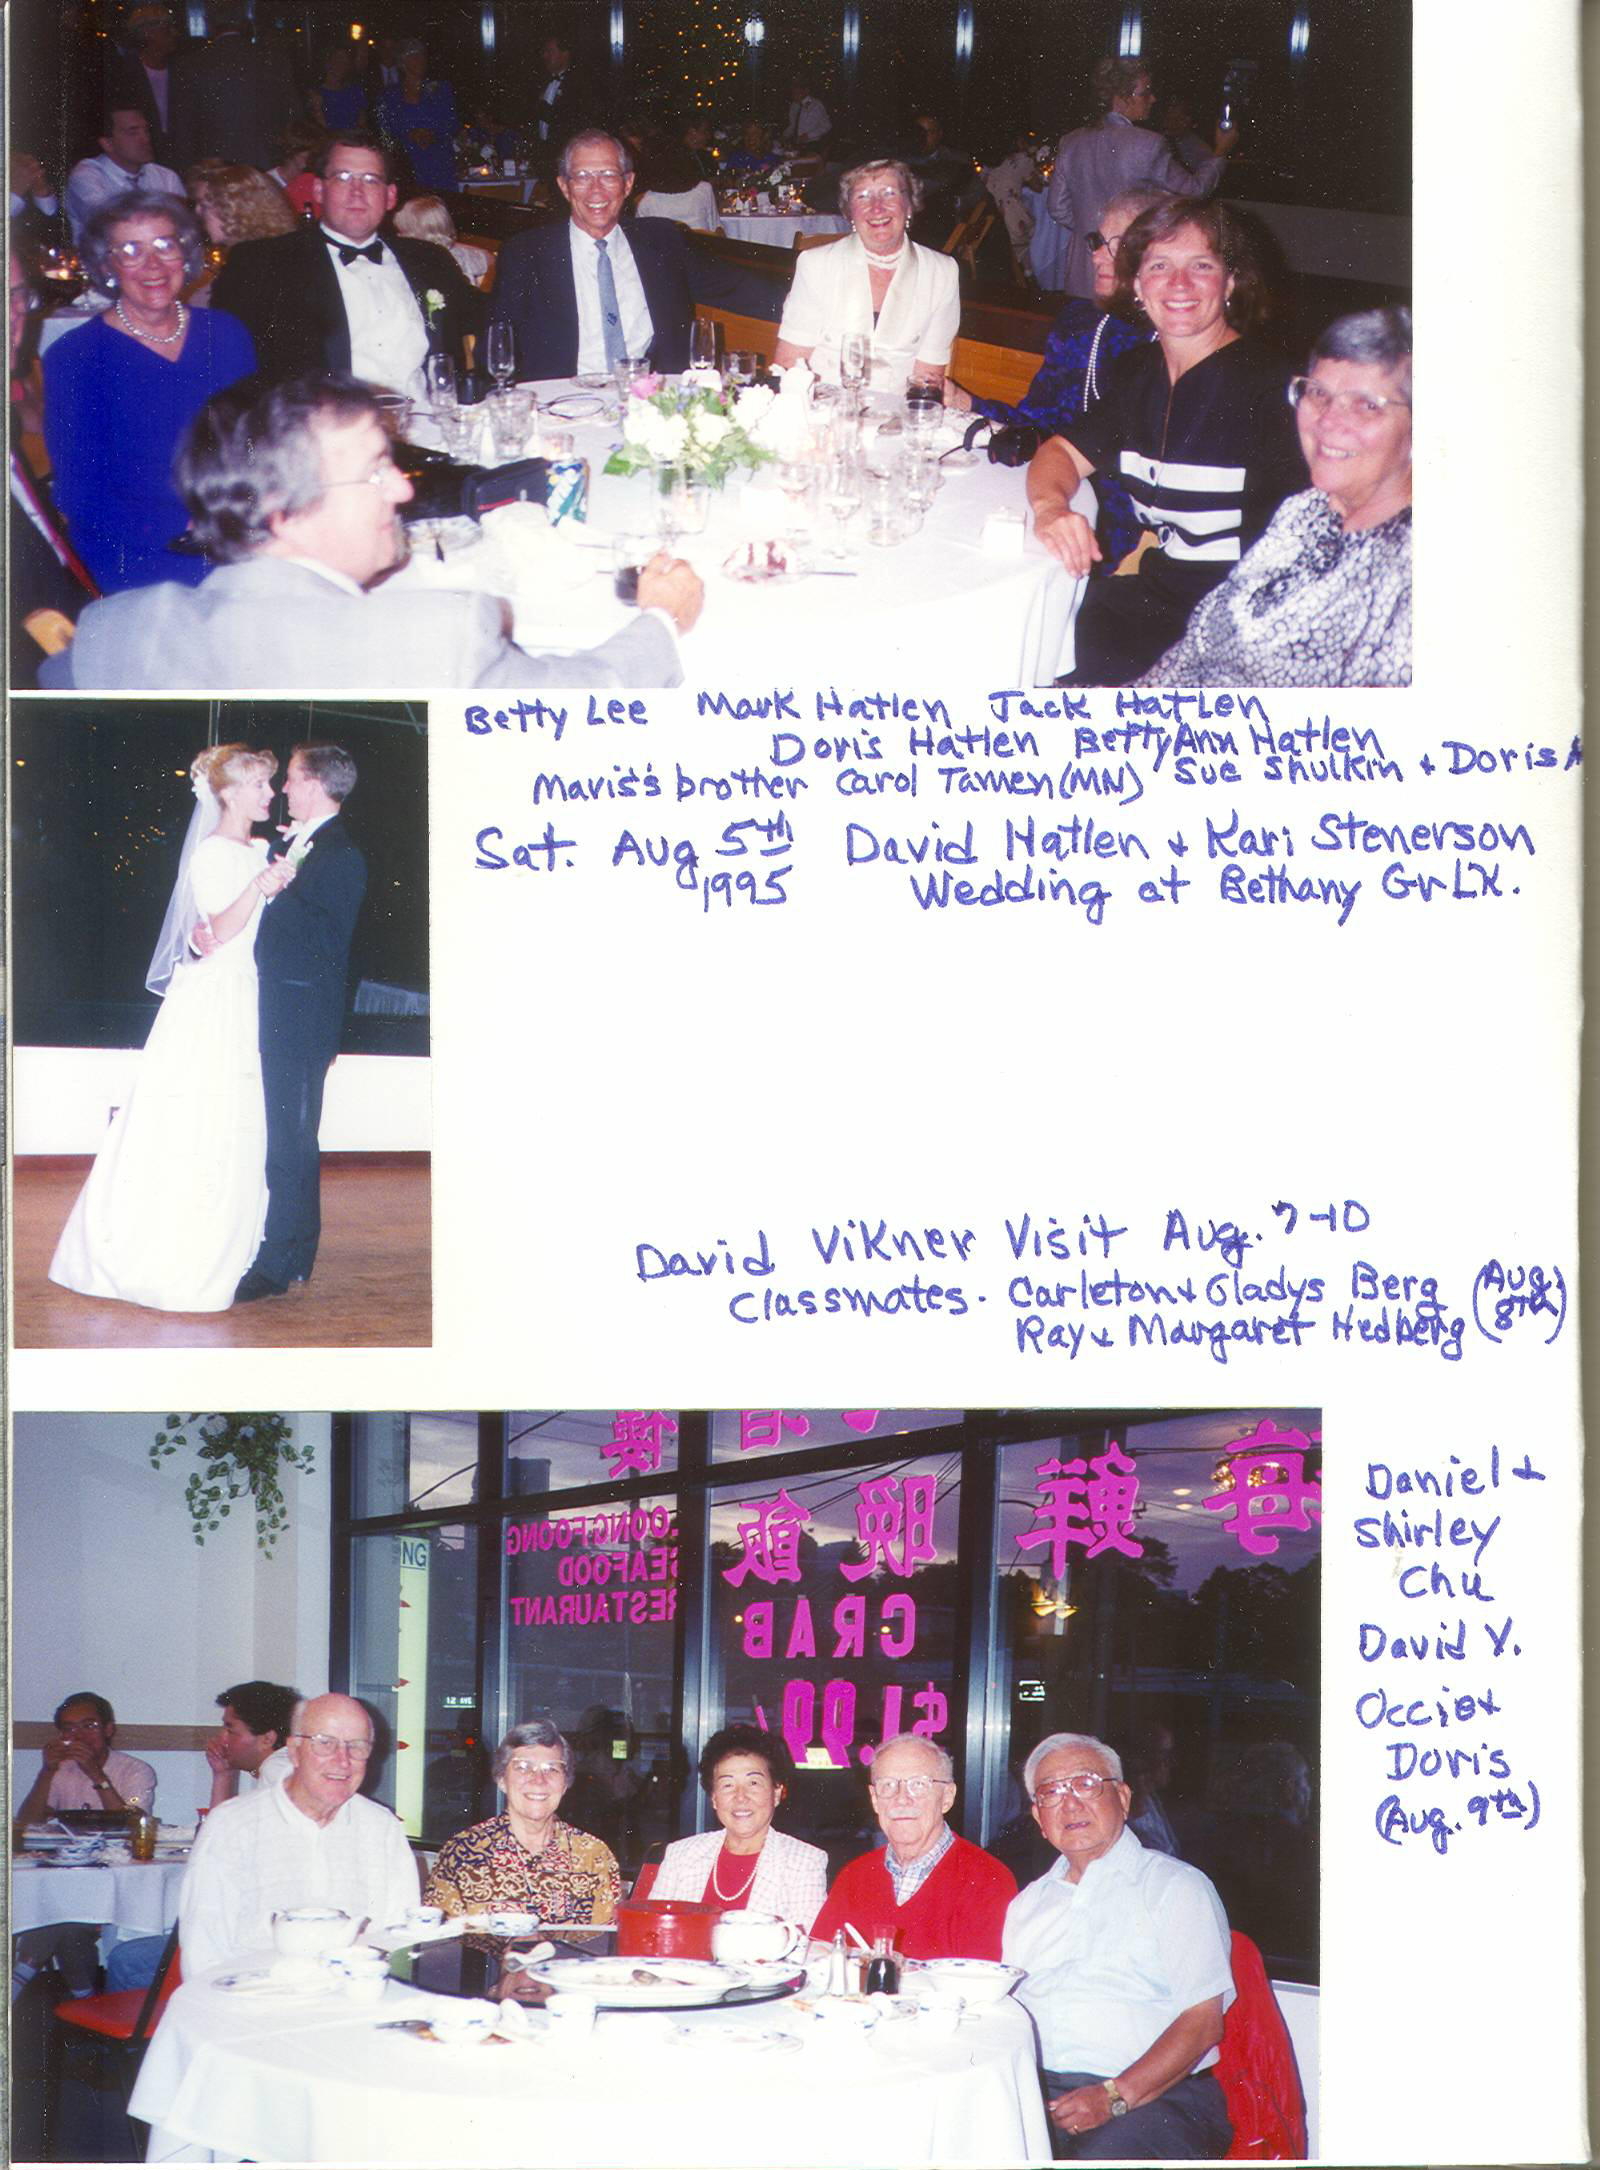 Betty Lee Mark Hatlen Jack Hatlen
Doris Hatlen BettyAnn Hatlen
Mavis's brother Carol Tamen (MN) Sue Shulkin + Doris
Sat. Aug 5th David Hatlen + Kari Stenerson
1995 Wedding at Bethany
David Vikner Visit Aug. 7-10
Classmates - Carleton + Gladys Berg (Aug
Ray + Margaret Hedberg 8th)
樓
海
每
鮮
晚飯
LOONGFOONG
SEAFOOD
RESTAURANT
CRAB
$1.99
NG
12 AVE
Daniel +
Shirley
Chu
David V.
Occie +
Doris
(Aug. 9th)